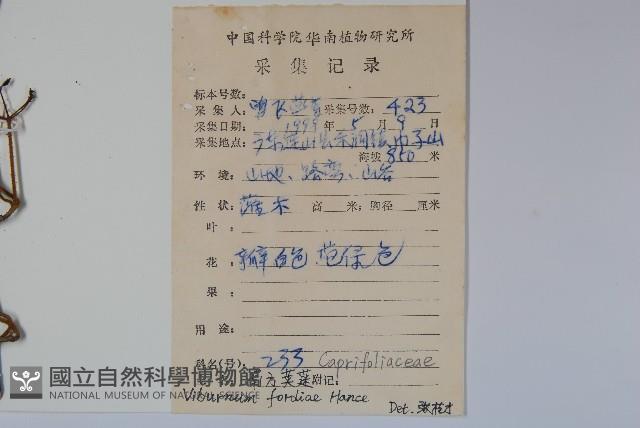 中国科学院华南植物研究所
采集记录
标本号数:
采集人: 采集号数: 423
采集日期: 1999年5月9日
采集地点: 广东连山县
海拔 850 米
环境: 山地、路旁、山谷
性状: 灌木 高 米; 胸径 厘米
叶:
花: 瓣白色 萼绿色
果:
用途:
科名(号): 233 Caprifoliaceae
南方荚蒾 附记:
Viburnum fordiae Hance
Det. 张桂才
國立自然科學博物館
NATIONAL MUSEUM OF NATURAL SCIENCE